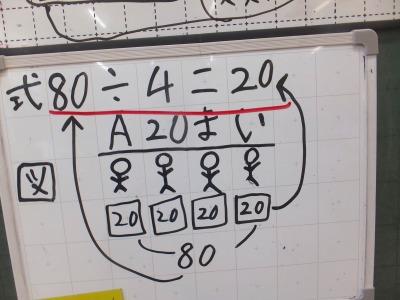 式 80 ÷ 4 = 20
A 20まい
図
20 20 20 20
80